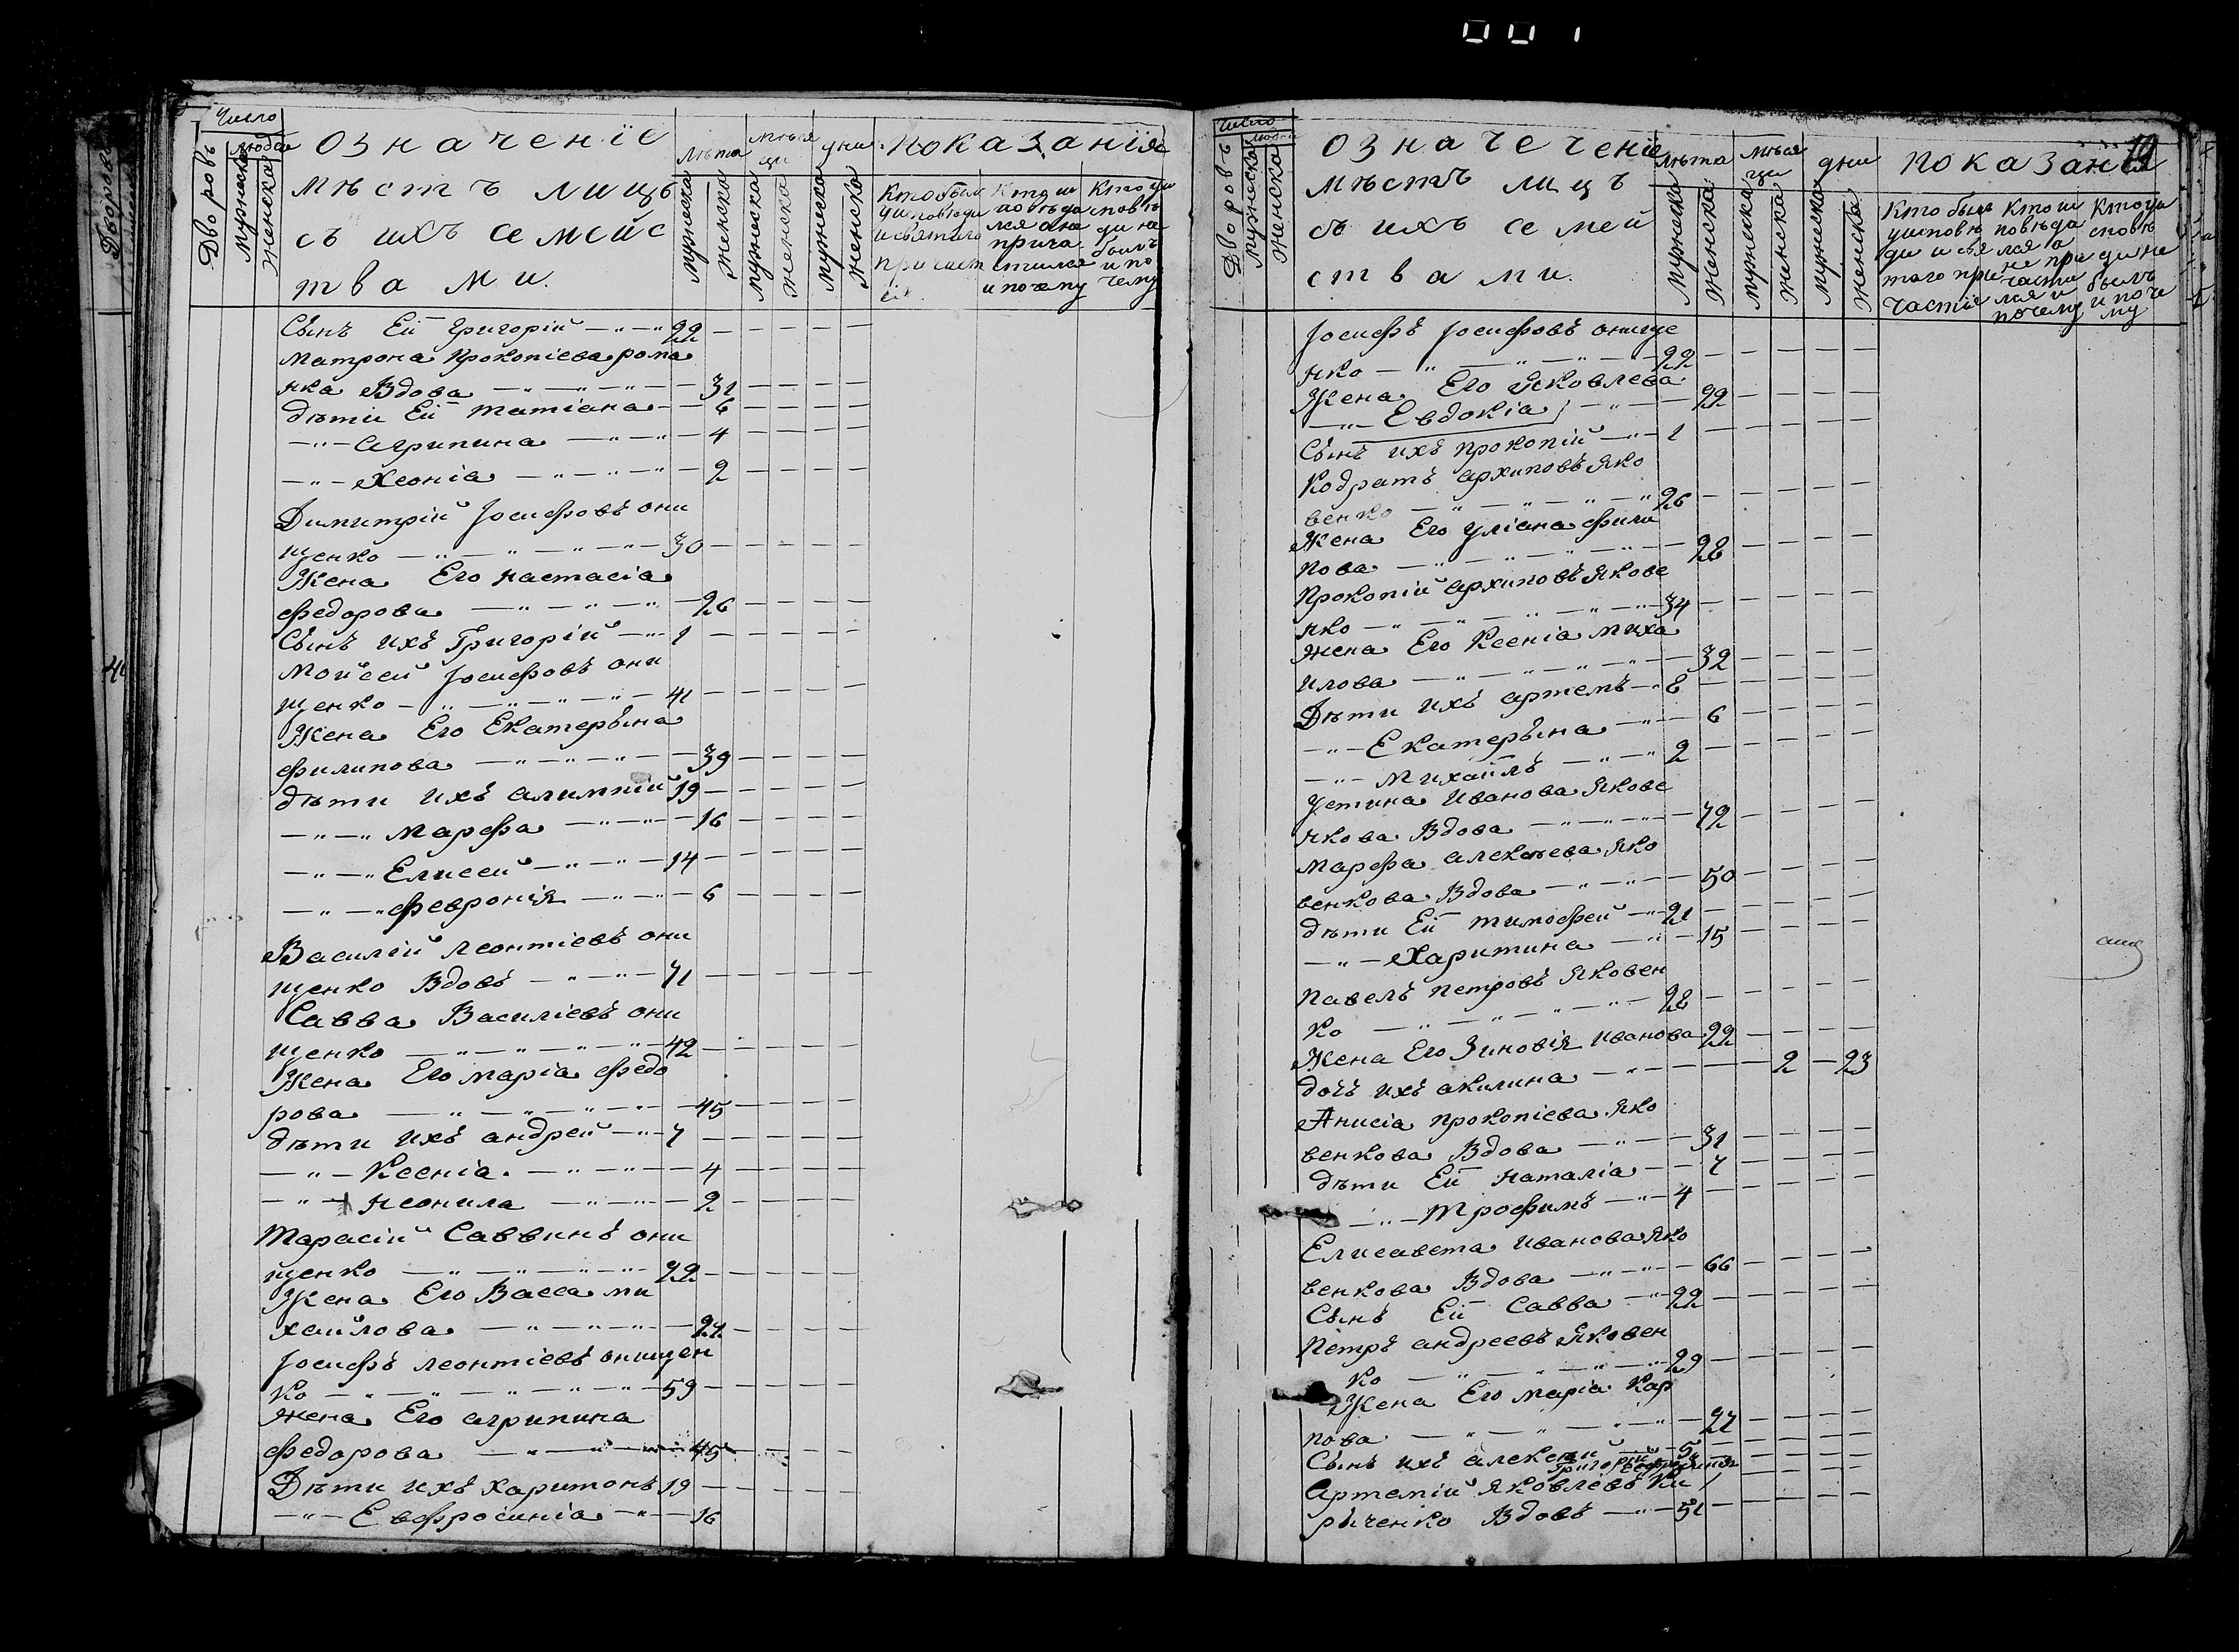 001
Число
Дворовъ
людей
мужеска
женска
означеніе
мѣстъ лицъ
съ ихъ семейс
твами.
лѣта
мѣся
ци
дни
мужеска
женска
мужеска
женска
мужеска
женска
показанія
Сынъ Еи Григорій 22
Матрона Прокопіева рома
нка Вдова 31
дѣти Еи Татіана 6
Агрипина 4
Хеонія 2
Димитрій Іосифовъ они
щенко 30
Жена Его Настасіа
Федорова 26
Сынъ ихъ Григорій 1
Мойсей Іосифовъ они
щенко 41
Жена Его Екатерына
Филипова 39
дѣти ихъ Алимпій 19
Марфа 16
Елисей 14
Февронія 6
Василій Леонтіевъ они
щенко Вдовъ 71
Савва Василіевъ они
щенко 42
Жена Его Маріа Федо
рова 45
дѣти ихъ Андрей 7
Ксеніа 4
Неонила 2
Тарасій Саввинъ они
щенко 22
Жена Его Васса Ми
хайлова 27
Іосифъ Леонтіевъ онищен
ко 59
Жена Его Агрипина
Федорова 45
Дѣти ихъ Харитонъ 19
Евфросиніа 16
Число
Дворовъ
людей
мужеска
женска
означечение
мѣстъ лицъ
съ ихъ семей
ствами.
лѣта
мѣся
ци
дни
мужеска
женска
мужеска
женска
мужеска
женска
показанія
Іосифъ Іосифовъ онище
нко 22
Жена Его Яковлева
Евдокіа 22
Сынъ ихъ Прокопій 1
Кодратъ Архиповъ Яко
венко 26
Жена Его Уліана Фили
пова 28
Прокопій Архиповъ Якове
нко 34
Жена Его Ксеніа Миха
илова 32
Дѣти ихъ Артемъ 8
Екатерына 6
Михаилъ 2
Устина Иванова Якове
нкова Вдова 72
Марфа Алексѣева Яко
венкова Вдова 50
дѣти Еи Тимофей 21
Харитина 15
Павелъ Петровъ Яковен
ко 28
Жена Его Зиновія Иванова 22
дочъ ихъ Акилина 2 23
Анисіа Прокопіева Яко
венкова Вдова 31
дѣти Еи Наталіа 7
Трофимъ 4
Елисавета Иванова Яко
венкова Вдова 66
Сынъ Еи Савва 22
Петръ Андреевъ Яковен
ко 29
Жена Его Маріа Кар
пова 27
Сынъ ихъ Алексѣй 5
Артемій Яковлевъ Ки
рыченко Вдовъ 51